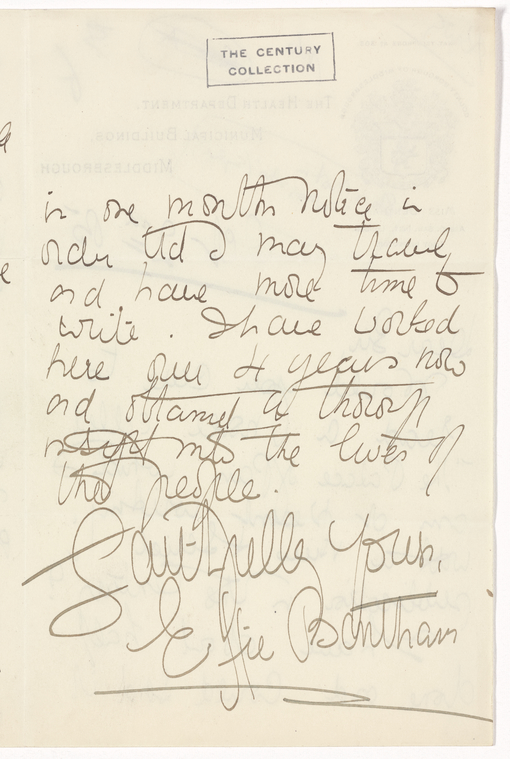 THE CENTURY
COLLECTION
THE HEALTH DEPARTMENT.
MUNICIPAL BUILDINGS,
MIDDLESBROUGH
in one months notice in
order that I may travel
and have more time to
write. I have worked
here over 4 years now
and obtained a thorough
insight into the lives of
the people.
Faithfully Yours,
Effie Bentham